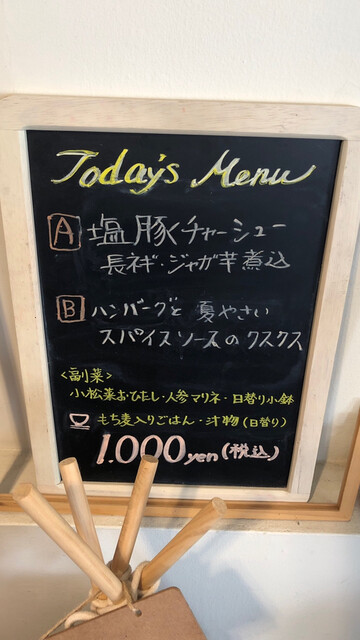 Today's Menu
A 塩豚くチャーシュー
長ネギ・ジャガ芋煮込
B ハンバーグと 夏やさい
スパイスソースのクスクス
<副菜>
小松菜おひたし・人参マリネ・日替り小鉢
もち麦入りごはん・汁物(日替り)
1.000yen(税込)